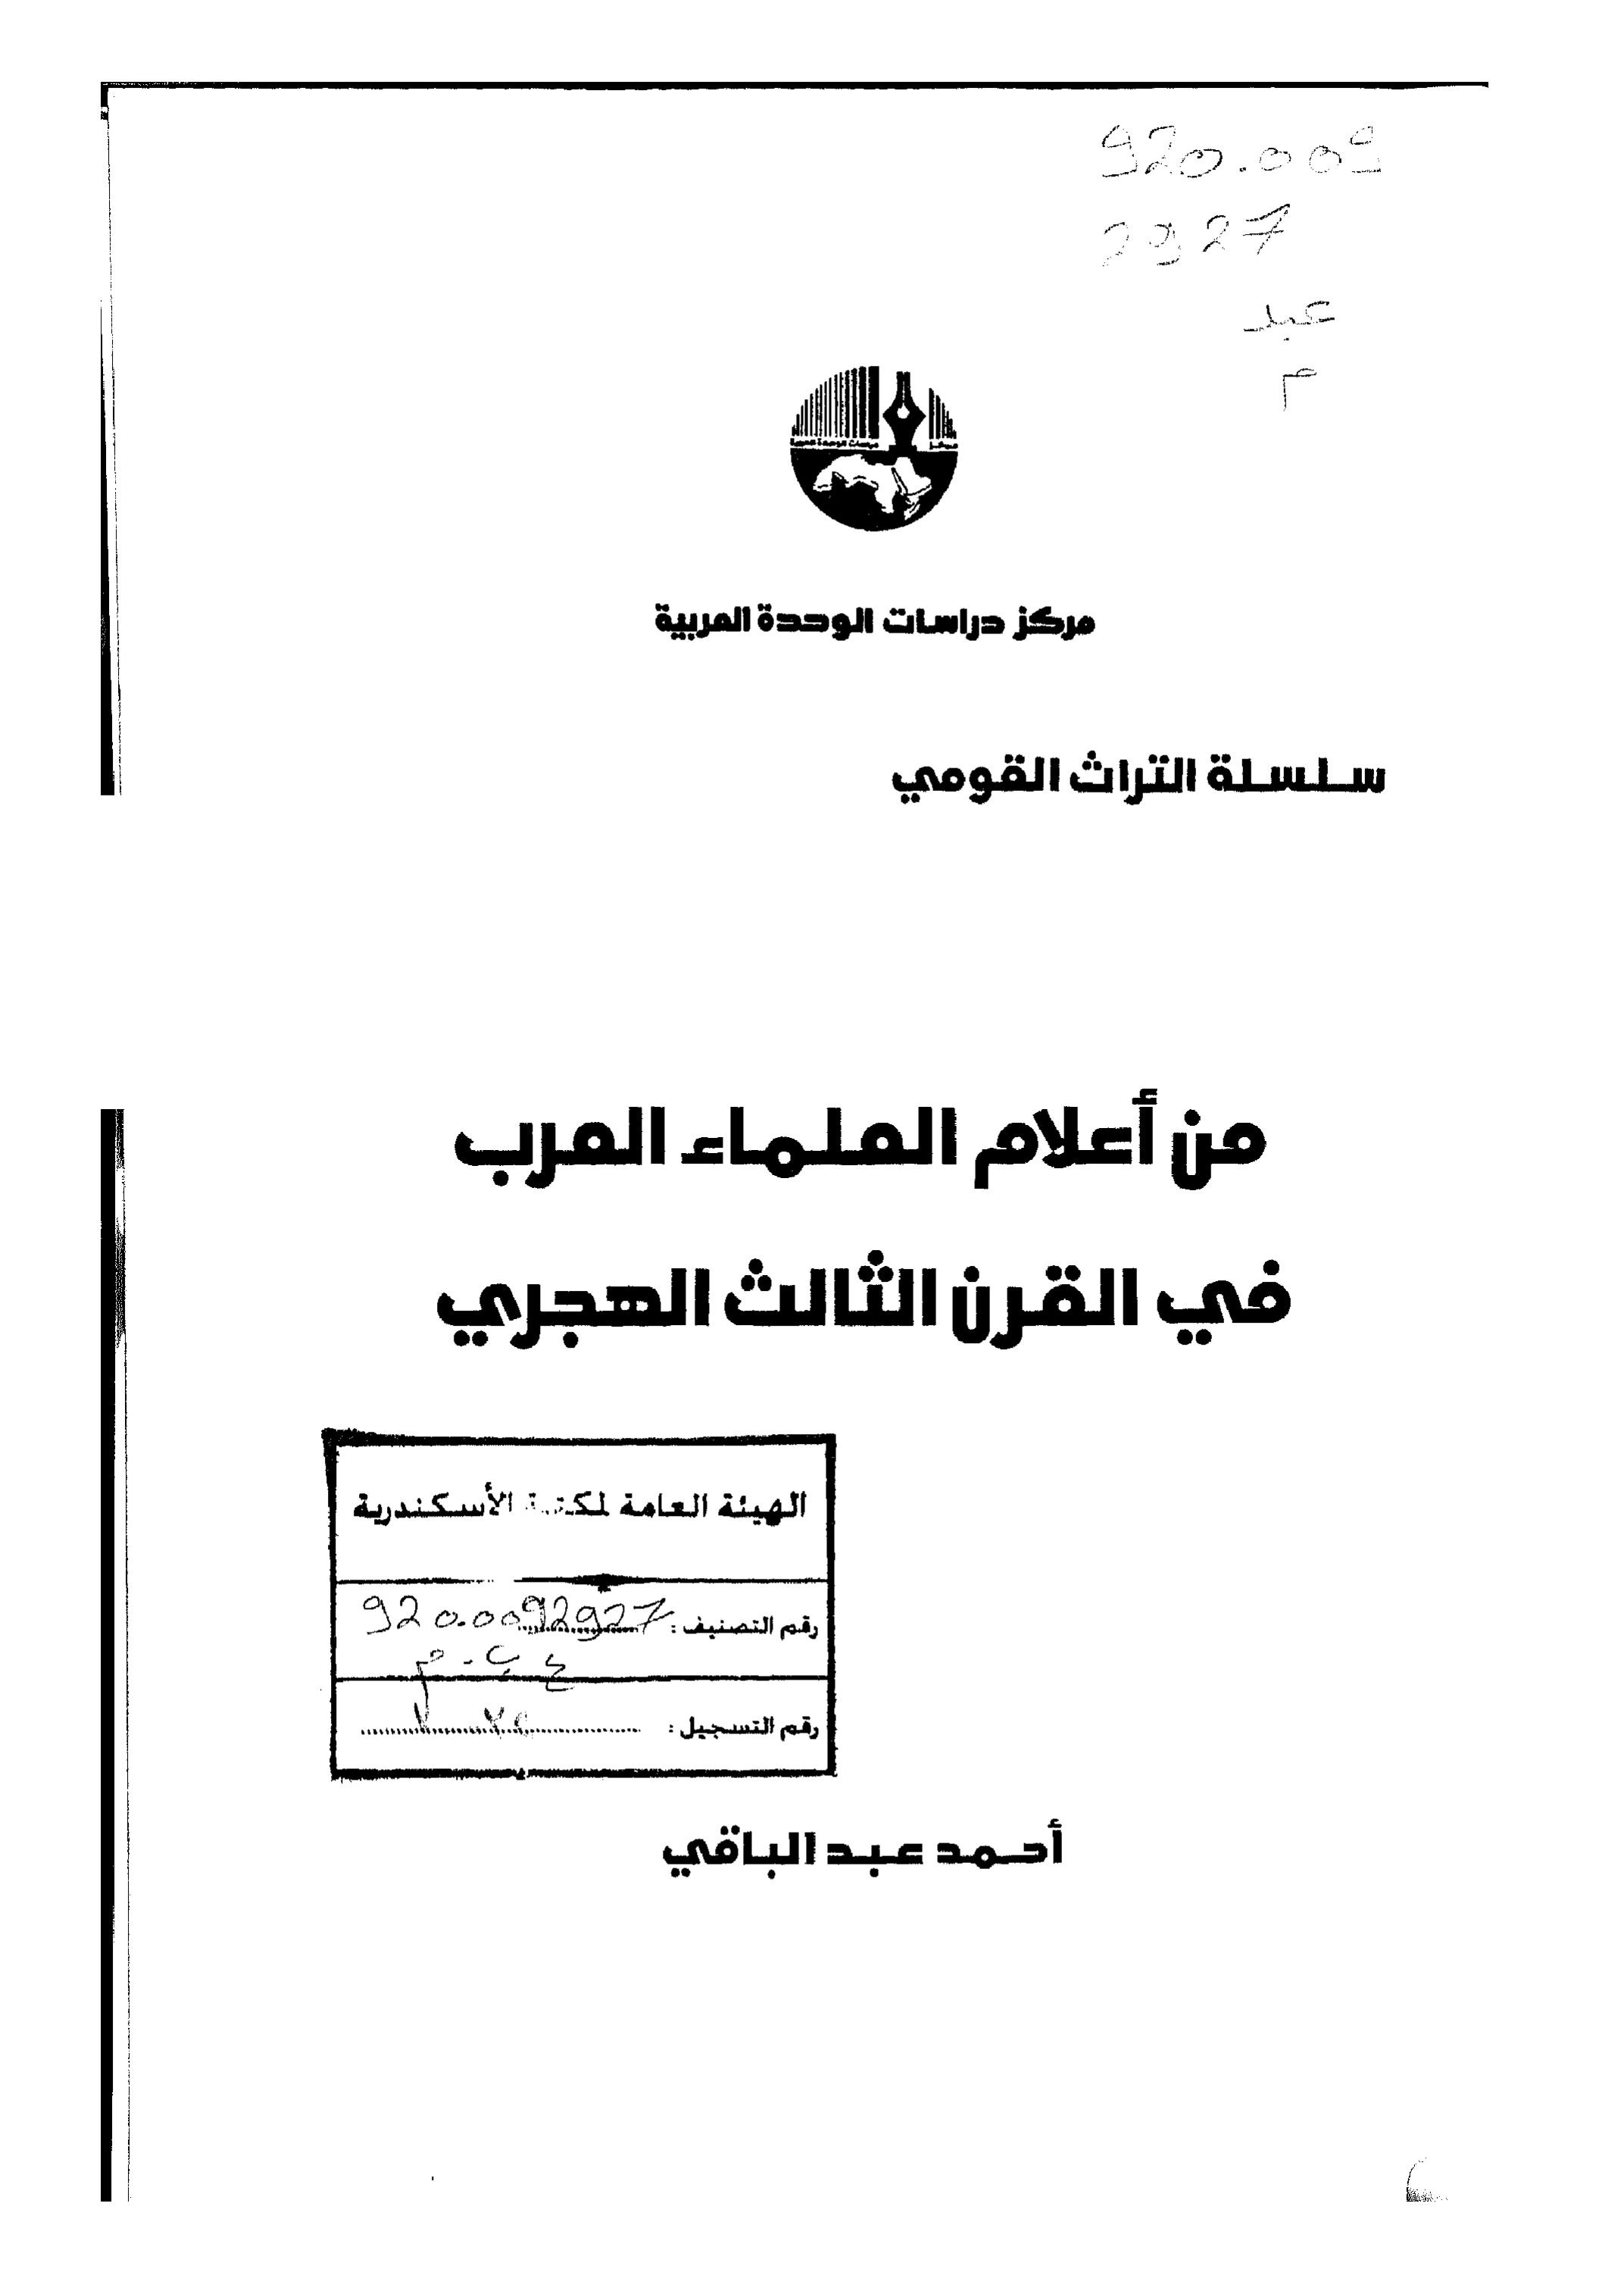 920.009
2927
عبد
م
مركز دراسات الوحدة العربية
مركز دراسات الوحدة العربية
سلسلة التراث القومي
من أعلام العلماء العرب
في القرن الثالث الهجري
الهيئة العامة لمكتبة الأسكندرية
رقم التصنيف : 920.0092927
رقم التسجيل :
أحمد عبد الباقي